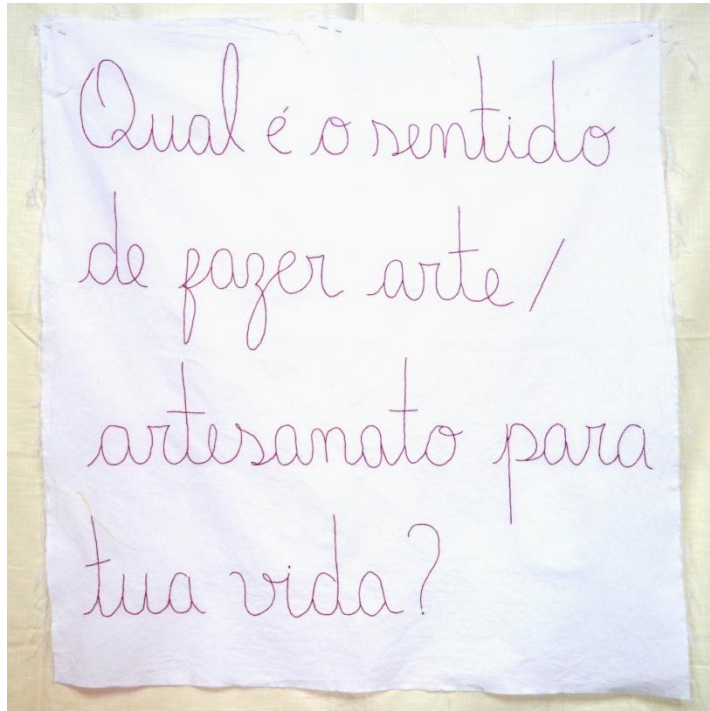 Qual é o sentido
de fazer arte/
artesanato para
tua vida?